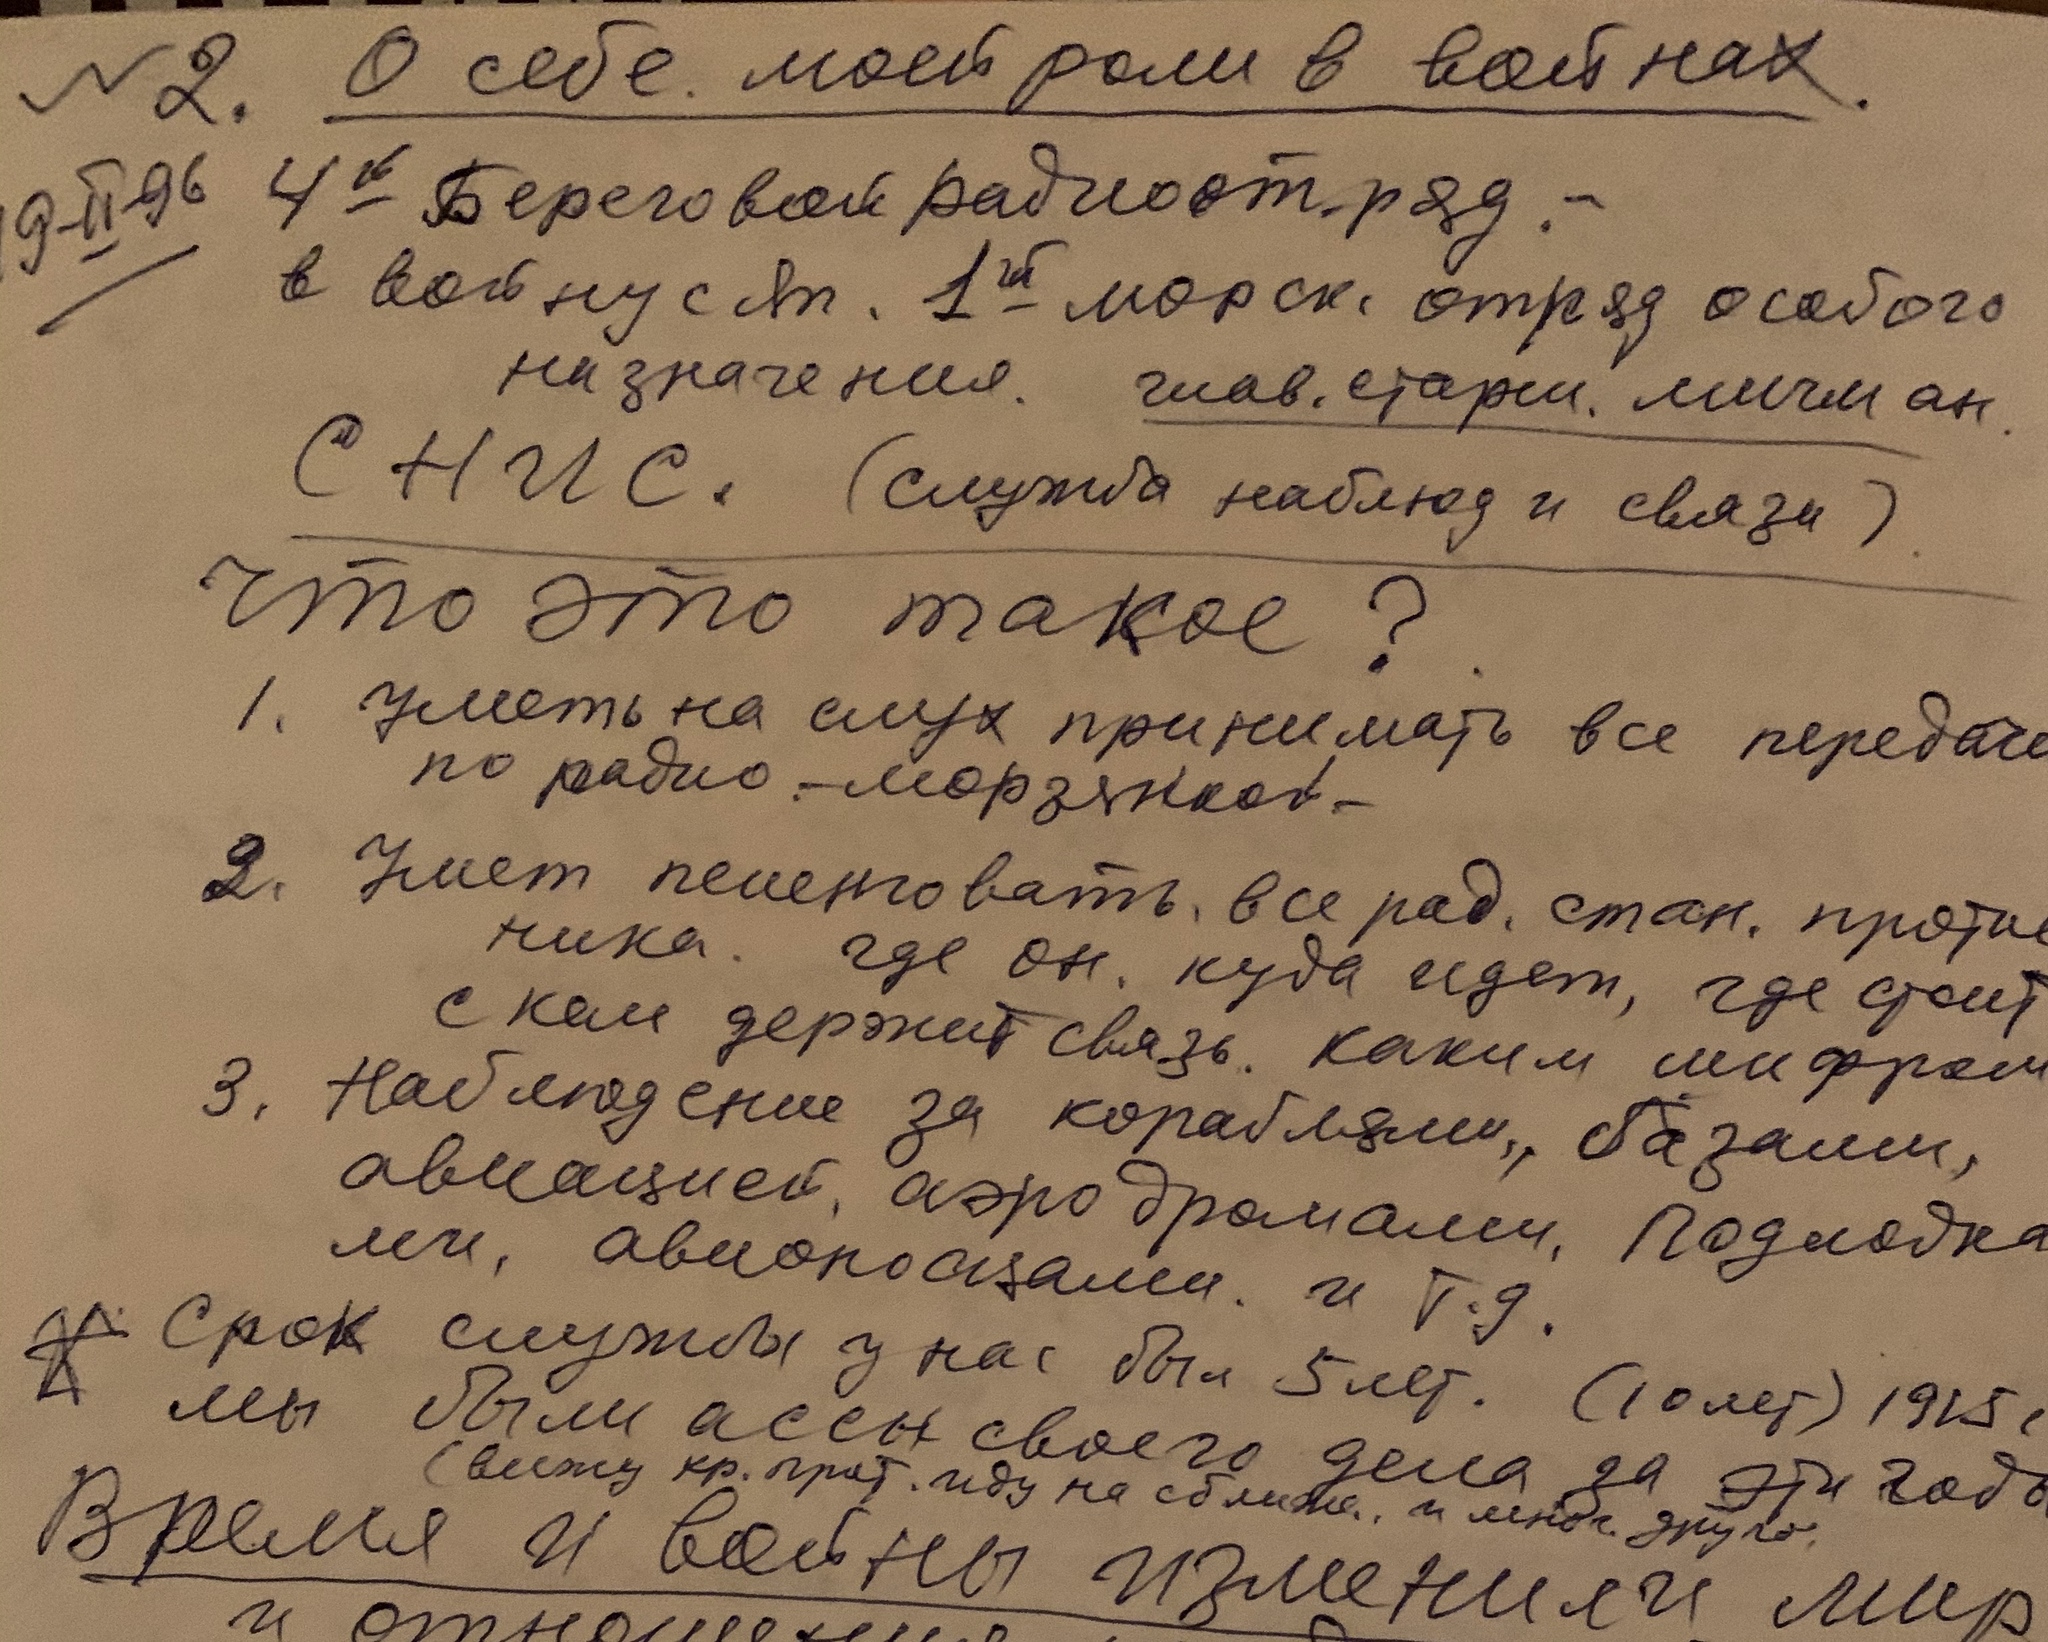 №2. О себе. моей роли в войнах.
19-II-96 4й Береговой радиоотряд. -
в войну с Яп. 1й морск. отряд особого
назначения. глав. старш. мичман.
СНИС. (служба наблюд и связи).
Что это такое?
1. Уметь на слух принимать все передачи
по радио - морзянкой -
2. Умет пеленговать. все рад. стан. против
ника. где он. куда идет, где стоит
с кем держит связь. каким шифром
3. Наблюдение за кораблями, базами,
авиацией, аэродромами, Подлодка
ми, авионосцами. и т.д.
Срок службы у нас был 5 лет. (10 лет)
мы были ассы своего дела за эти годы
(вижу кр. прот. иду на сближ. и мног. друго.
Время и войны изменили мир
и отношения